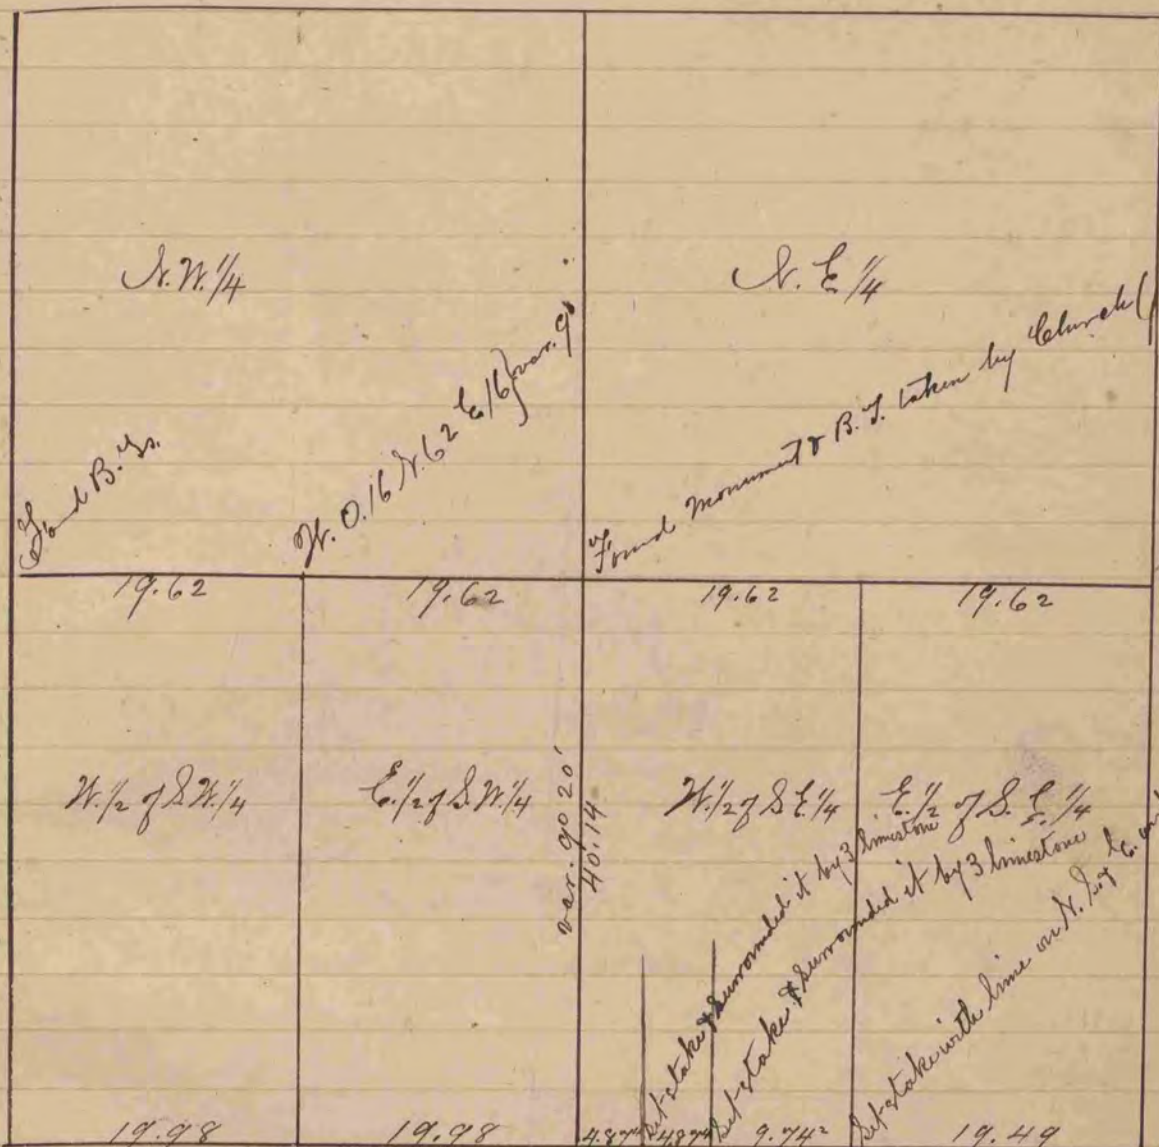 N.W. 1/4
N. E 1/4
Found B. Ts.
W. O. 16 N. 62 E 16 } var. 9°
Found Monument & B. T. taken by Church
19.62
19.62
19.62
19.62
W. 1/2 of S. W. 1/4
E. 1/2 of S. W. 1/4
var. 9° 20'
40.14
W. 1/2 of S E. 1/4
E. 1/2 of S. E. 1/4
Set stake & Surrounded it by 3 limestone
Set stake & Surrounded it by 3 limestone
Set stake with lime on N.
19.98
19.98
9.74²
19.49